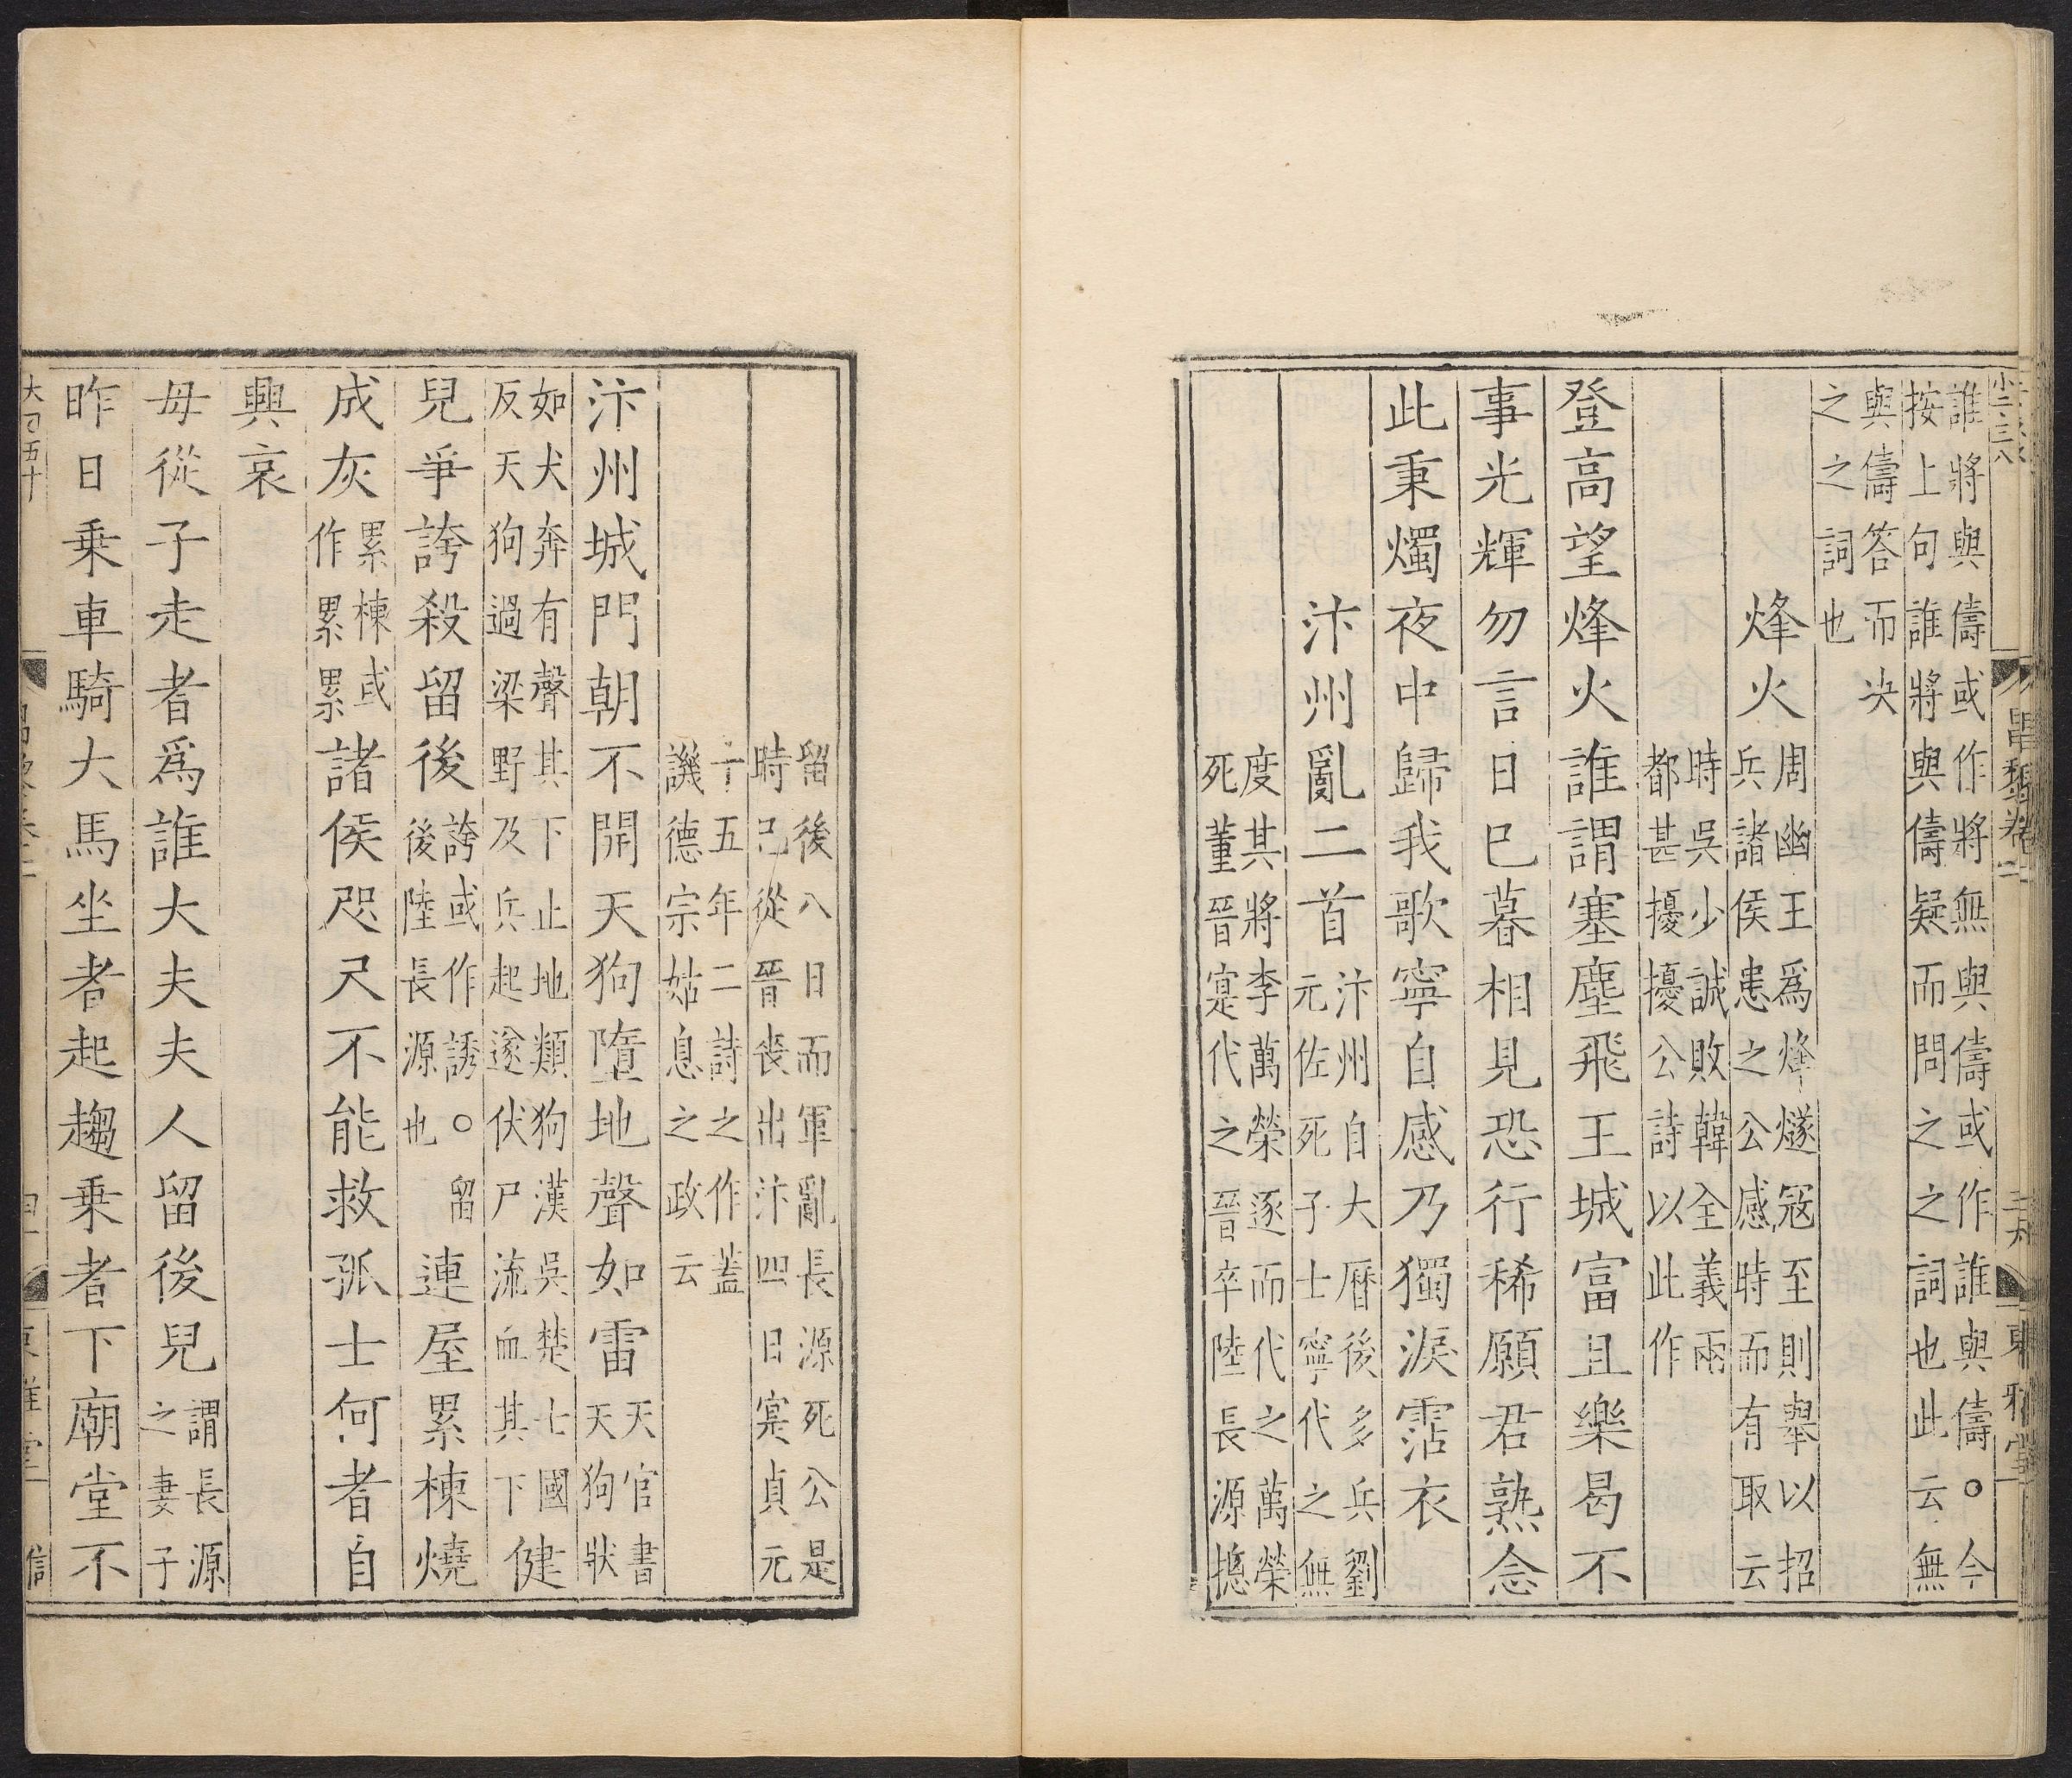 誰將與儔或作將無與儔或作誰與儔○今
按上句誰將與儔疑而問之之詞也此云無
與儔答而決
之之詞也
烽火周幽王為烽燧冦至則舉以招
兵諸侯患之公感時而有取云
時吳少誠敗韓全義兩
都甚擾擾公詩以此作
登高望烽火誰謂塞塵飛王城富且樂曷不
事光輝勿言日巳暮相見恐行稀願君熟念
此秉燭夜中歸我歌寧自感乃獨淚霑衣
汴州亂二首汴州自大曆後多兵劉
元佐死子士寧代之無
度其將李萬榮逐而代之萬榮
死董晉寔代之晉卒陸長源摠
留後八日而軍亂長源死公是
時已從晉喪出汴四日寔貞元
十五年二詩之作蓋
譏德宗姑息之政云
汴州城門朝不開天狗墮地聲如雷天官書
天狗狀
如犬奔有聲其下止地類狗漢吳楚七國
反天狗過梁野及兵起遂伏尸流血其下
健
兒爭誇殺留後誇或作誘○留
後陸長源也
連屋累棟燒
成灰累棟或
作累累
諸侯咫尺不能救孤士何者自
興哀
母從子走者爲誰大夫夫人留後兒謂長源
之妻子
昨日乗車騎大馬坐者起趨乗者下廟堂不
東雅堂
信